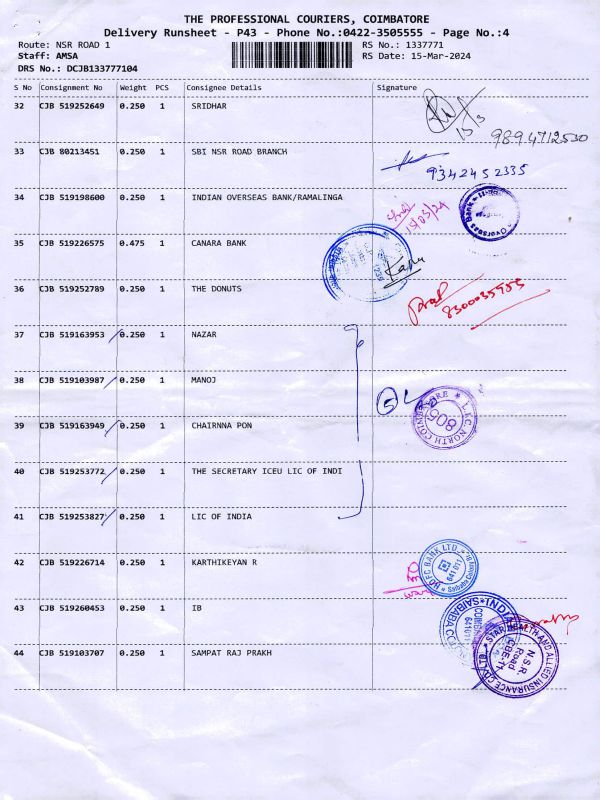 THE PROFESSIONAL COURIERS, COIMBATORE
Delivery Runsheet - P43 - Phone No.:0422-3505555 - Page No.:4
Route: NSR ROAD 1 RS No.: 1337771
Staff: AMSA RS Date: 15-Mar-2024
DRS No.: DCJB133777104
S No Consignment No Weight PCS Consignee Details Signature
32 CJB 519252649 0.250 1 SRIDHAR
15/3
9894712530
33 CJB 80213451 0.250 1 SBI NSR ROAD BRANCH
9342452335
34 CJB 519198600 0.250 1 INDIAN OVERSEAS BANK/RAMALINGA
15/03/24
Overseas Bank
35 CJB 519226575 0.475 1 CANARA BANK
36 CJB 519252789 0.250 1 THE DONUTS
8300035955
37 CJB 519163953 0.250 1 NAZAR
38 CJB 519103987 0.250 1 MANOJ
5
L.I.C NORTH COIMBATORE
805
39 CJB 519163949 0.250 1 CHAIRNNA PON
40 CJB 519253772 0.250 1 THE SECRETARY ICEU LIC OF INDI
41 CJB 519253827 0.250 1 LIC OF INDIA
42 CJB 519226714 0.250 1 KARTHIKEYAN R
HDFC BANK LTD.
641 011
Saibaba Colony
43 CJB 519260453 0.250 1 IB
SAIBABA CO
STAR HEALTH AND ALLIED INSURANCE CO. LTD.
N.S.R.
Road
CBE-11.
44 CJB 519103707 0.250 1 SAMPAT RAJ PRAKH